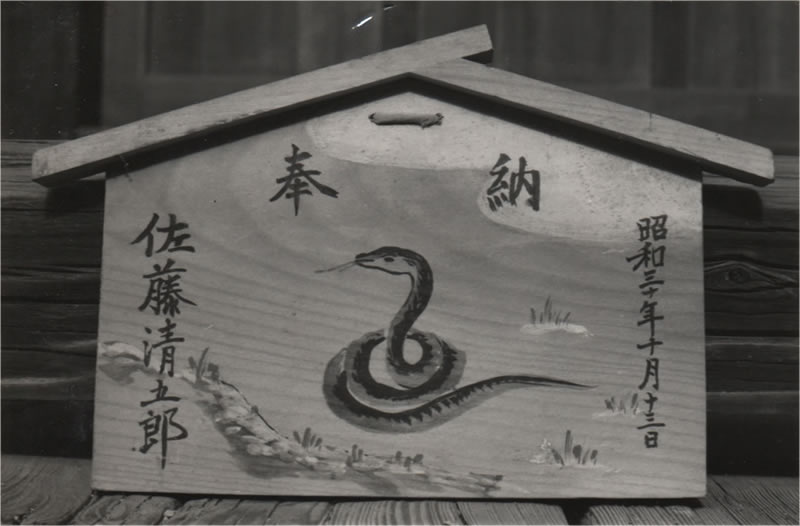 奉納
昭和三十年十月十三日
佐藤清五郎